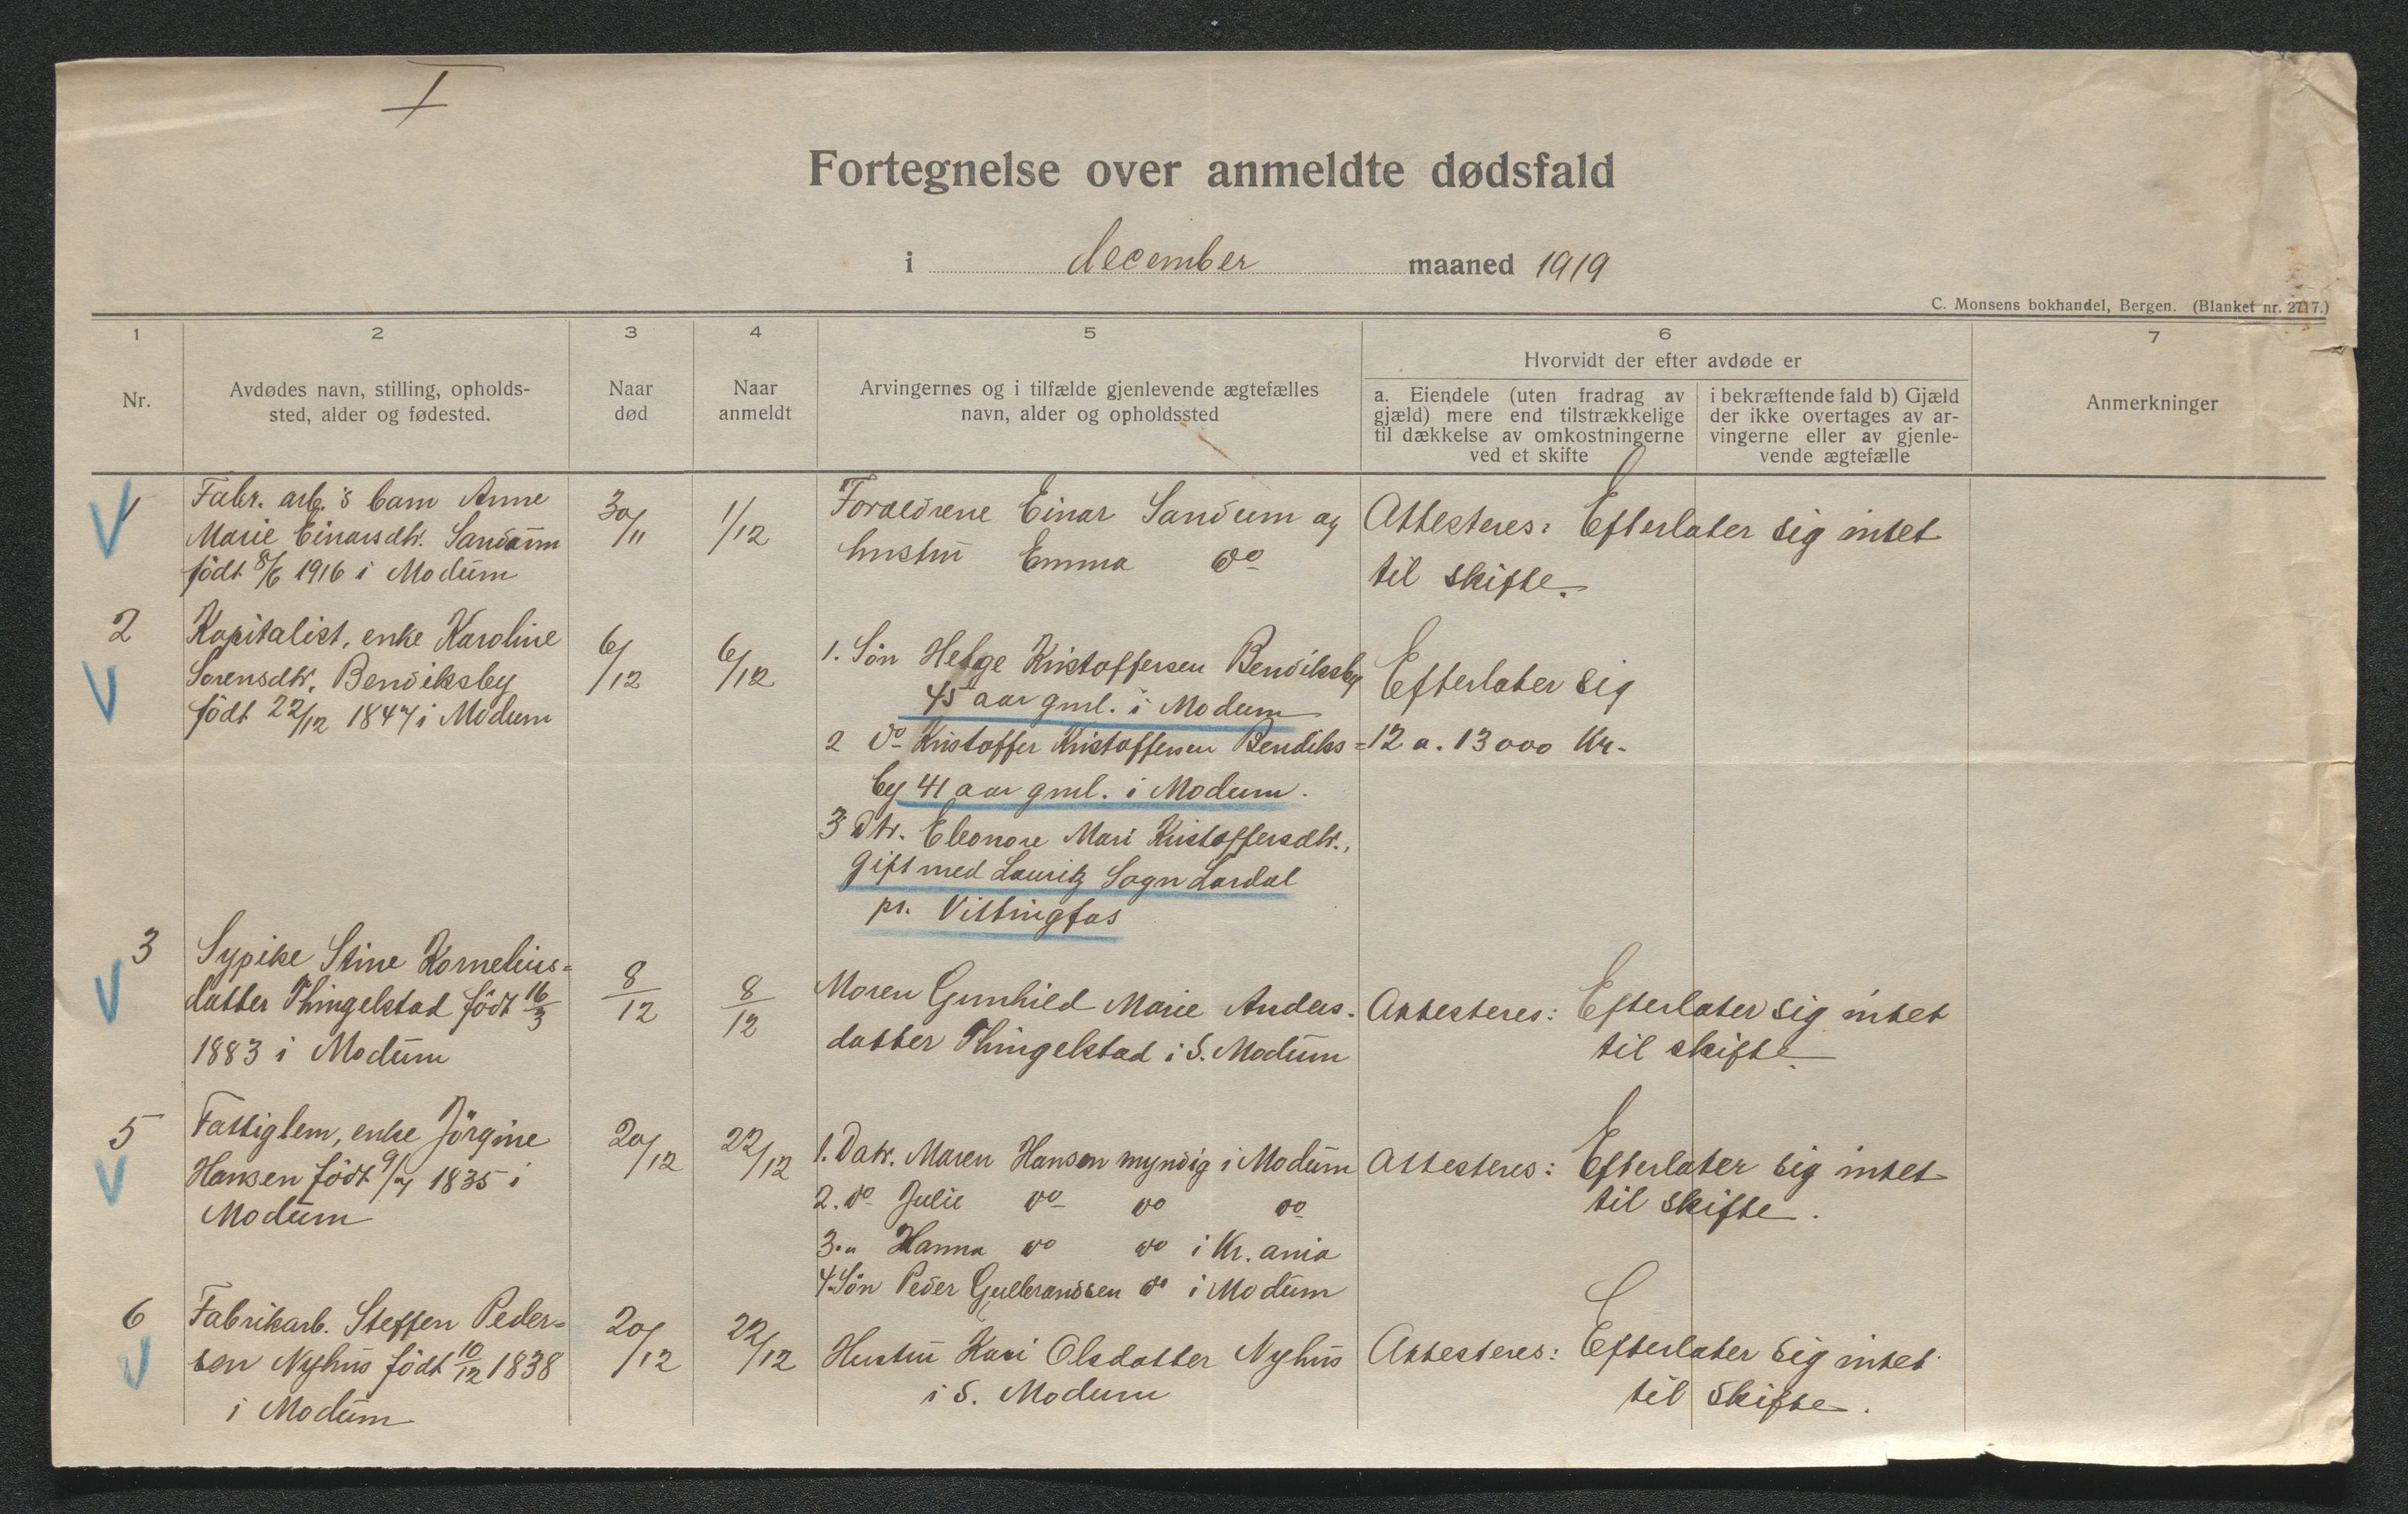 I
Fortegnelse over anmeldte dødsfald
i december maaned 1919
C. Monsens bokhandel, Bergen. (Blanket nr. 2717.)
1 2 3 4 5 6 7
Nr.
Avdødes navn, stilling, opholds-
sted, alder og fødested.
Naar
død
Naar
anmeldt
Arvingernes og i tilfælde gjenlevende ægtefælles
navn, alder og opholdssted
Hvorvidt der efter avdøde er
a. Eiendele (uten fradrag av
gjæld) mere end tilstrækkelige
til dækkelse av omkostningerne
ved et skifte
i bekræftende fald b) Gjæld
der ikke overtages av ar-
vingerne eller av gjenle-
vende ægtefælle
Anmerkninger
1
Fabr. arb.'s barn Anne
Marie Einarsdtr. Sandum
født 8/6 1916 i Modum
30/11
1/12
Forældrene Einar Sandum og
hustru Emma do
Attesteres: Efterlater sig intet
til skifte.
2
Kapitalist, enke Karoline
Sørensdtr. Bendiksby
født 22/12 1847 i Modum
6/12
6/12
1. Søn Helge Kristoffersen Bendiksby
45 aar gml. i Modum
2 do Kristoffer Kristoffersen Bendiks=
by 41 aar gml. i Modum.
3 Dtr. Eleonore Mari Kristoffersdtr.,
gift med Lauritz Sogn Lardal
pr. Vittingfos
Efterlater sig
12 a. 13000 Kr.
3
Sypike Stine Kornelius=
datter Thingelstad født 16/3
1883 i Modum
8/12
8/12
Moren Gunhild Marie Anders.
datter Thingelstad i S. Modum
Attesteres: Efterlater sig intet
til skifte.
5
Fattiglem, enke Jörgine
Hansen født 9/7 1835 i
Modum
20/12
22/12
1. Datr. Maren Hansen myndig i Modum
2. do Julie do do do
3. " Hanna do do i Kr. ania
4. Søn Peder Gulbrandsen do i Modum
Attesteres: Efterlater sig intet
til skifte.
6
Fabrikarb. Steffen Peder=
sen Nyhus født 10/12 1838
i Modum
20/12
22/12
Hustru Kari Olsdatter Nyhus
i S. Modum
Attesteres: Efterlater sig intet
til skifte.